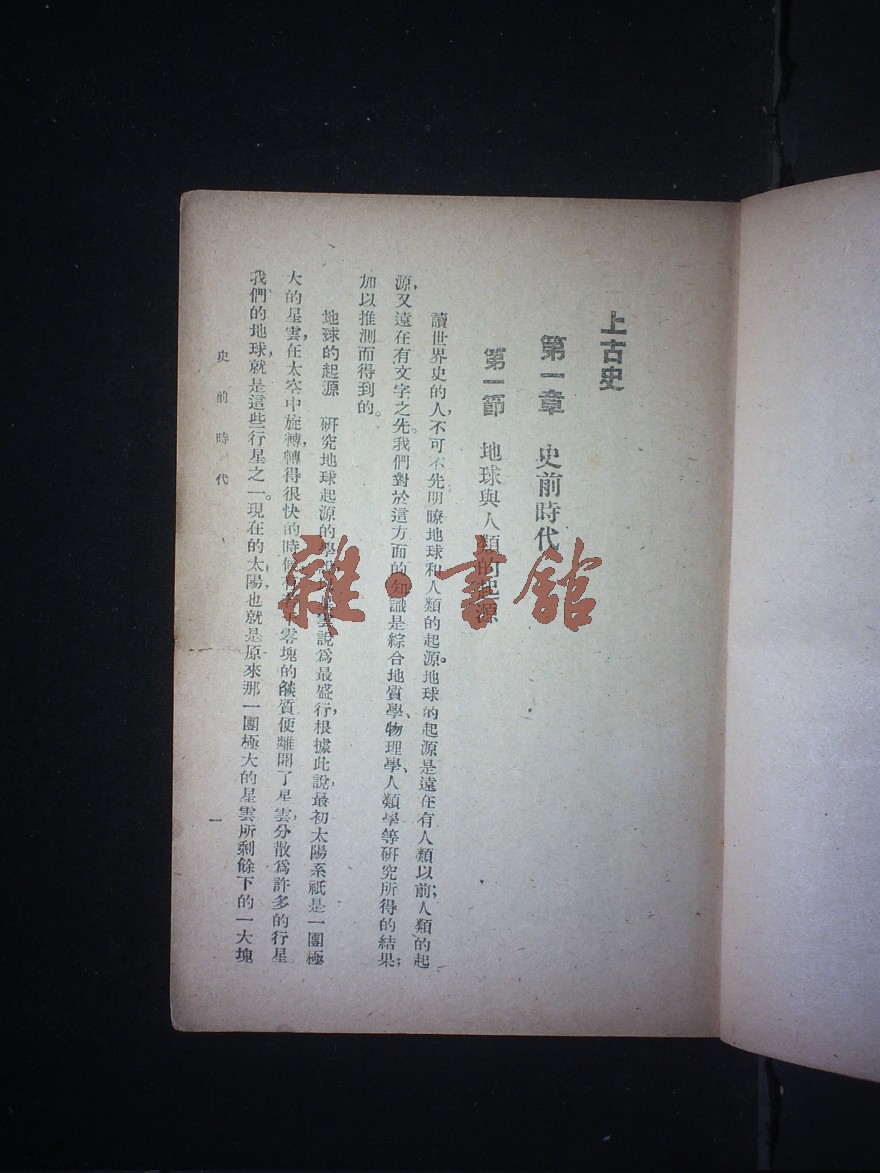 上古史
第一章 史前時代
第一節 地球與人類的起源
讀世界史的人，不可不先明瞭地球和人類的起源。地球的起源是遠在有人類以前；人類的起
源，又遠在有文字之先。我們對於這方面的知識是綜合地質學、物理學、人類學等研究所得的結果；
加以推測而得到的。
地球的起源 研究地球起源的學說，星雲說爲最盛行，根據此說，最初太陽系祇是一團極
大的星雲，在太空中旋轉，轉得很快的時候，有零塊的燄質便離開了星雲，分散爲許多的行星。
我們的地球，就是這些行星之一。現在的太陽，也就是原來那一團極大的星雲所剩餘下的一大塊
史前時代
一
雜·書館